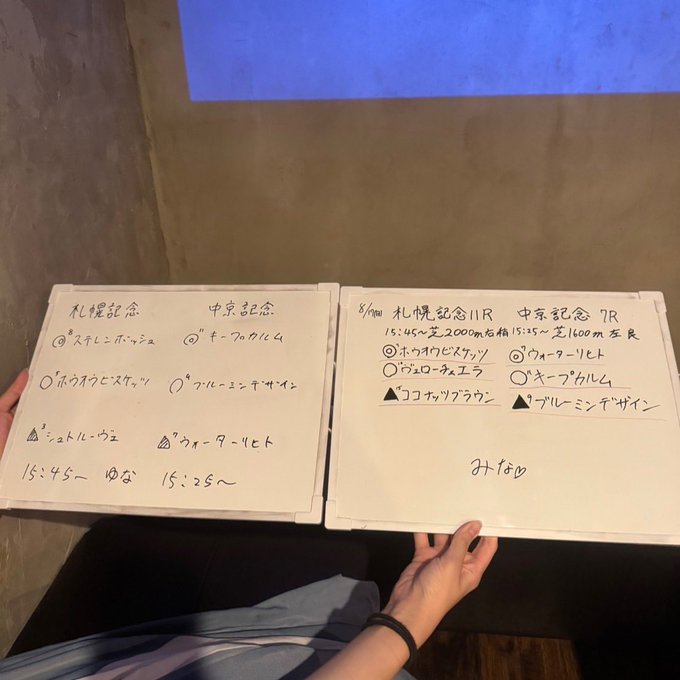 札幌記念 中京記念
◎⁸ステレンボッシュ ◎¹¹キープカルム
○⁵ホウオウビスケッツ ○⁹ブルーミンデザイン
▲³シュトルーヴェ ▲⁷ウォーターリヒト
15:45〜 ゆな 15:25〜
8/17(日) 札幌記念11R 中京記念 7R
15:45〜芝2000m右 15:25〜芝1600m左 良
◎⁵ホウオウビスケッツ ◎⁷ウォーターリヒト
○ヴェローチェエラ ○¹¹キープカルム
▲ココナッツブラウン ▲⁹ブルーミンデザイン
みな♡